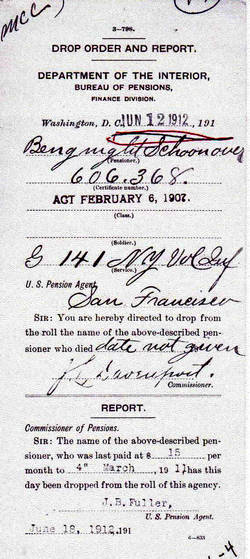 MCC
3—798.
DROP ORDER AND REPORT.
DEPARTMENT OF THE INTERIOR,
BUREAU OF PENSIONS,
FINANCE DIVISION.
Washington, D. C. JUN 12 1912, 191
Bengnight Schoonover
(Pensioner.)
606.368.
(Certificate number.)
ACT FEBRUARY 6, 1907.
(Class.)
(Soldier.)
G 141 NY Vol Inf
(Service.)
U. S. Pension Agent,
San Francisco
SIR: You are hereby directed to drop from
the roll the name of the above-described pen-
sioner who died date not given
J L Davenport.
Commissioner.
REPORT.
Commissioner of Pensions.
SIR: The name of the above-described pen-
sioner, who was last paid at $ 15
per month to 4" March, 191 has this
day been dropped from the roll of this agency.
J. B. Fuller,
U. S. Pension Agent.
June 18, 1912. 191
6—833